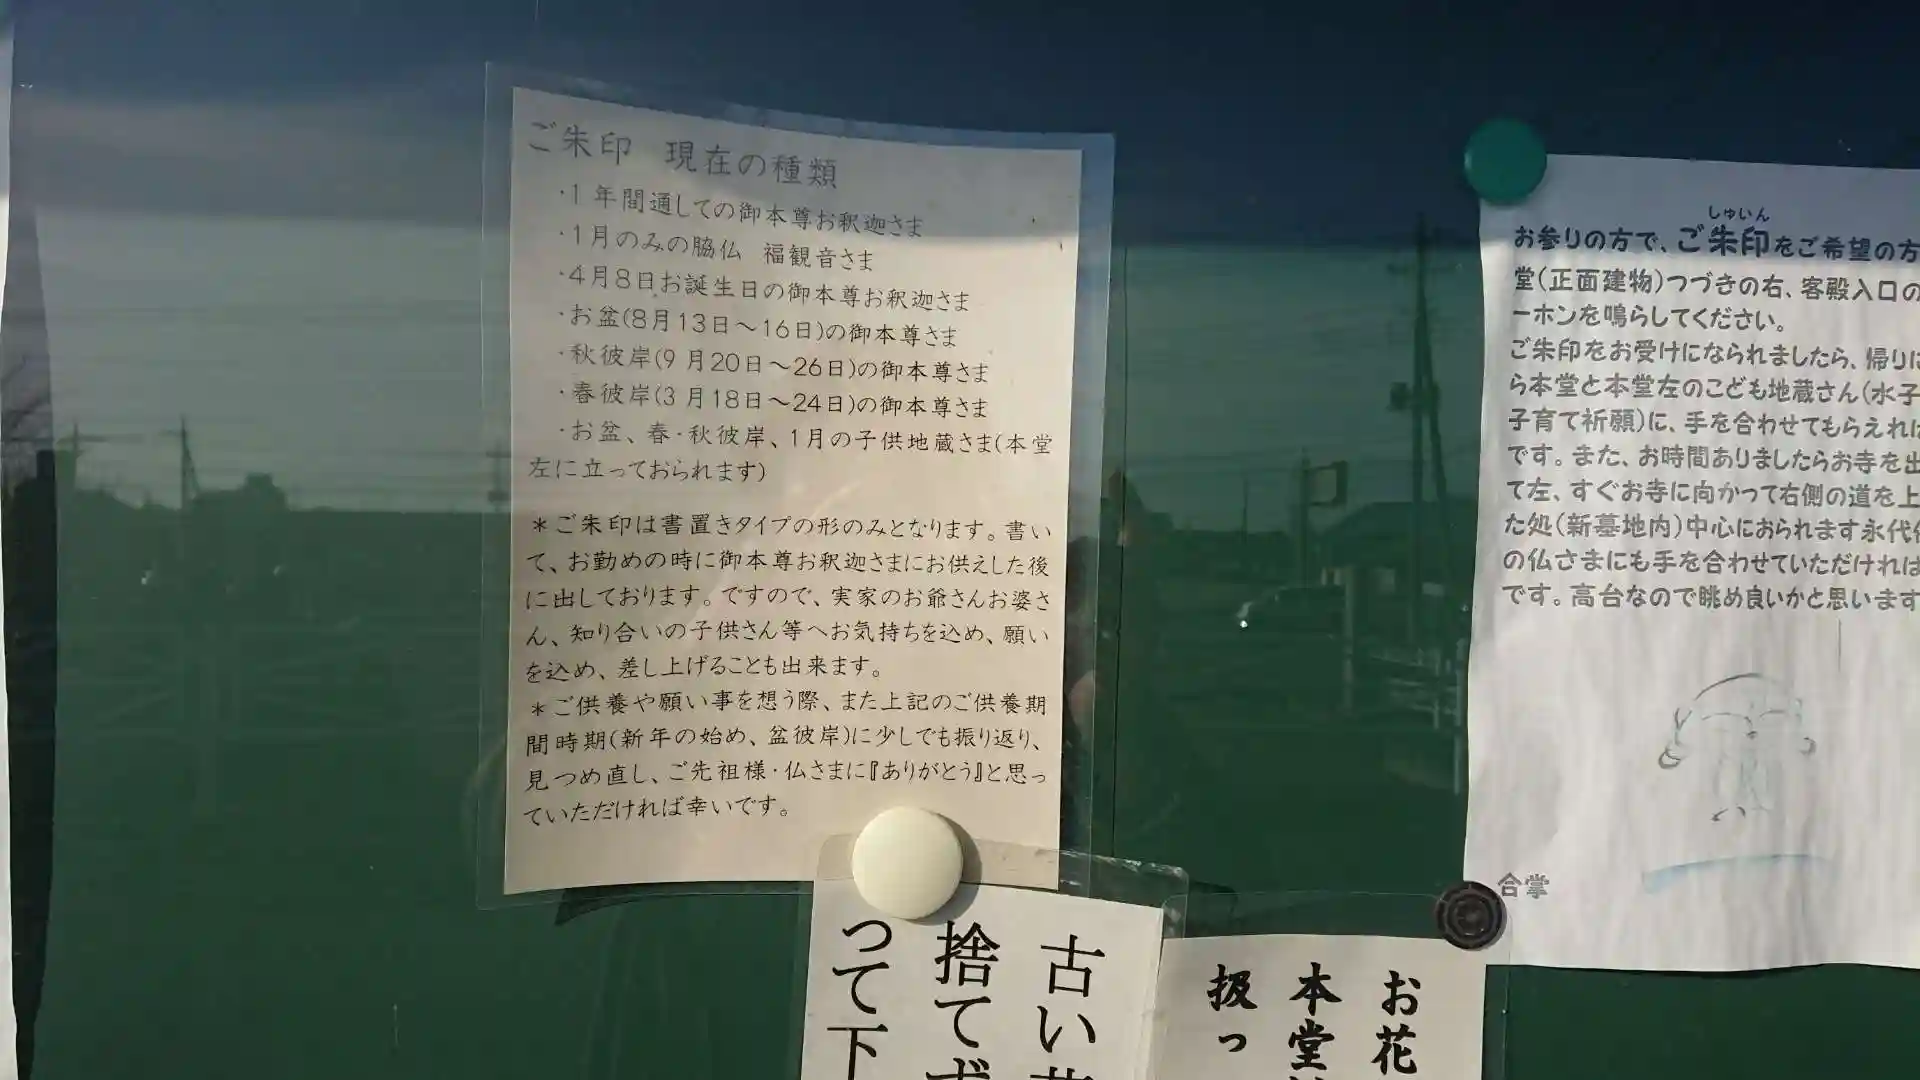 ご朱印 現在の種類
・1年間通しての御本尊お釈迦さま
・1月のみの脇仏 福観音さま
・4月8日お誕生日の御本尊お釈迦さま
・お盆(8月13日～16日)の御本尊さま
・秋彼岸(9月20日～26日)の御本尊さま
・春彼岸(3月18日～24日)の御本尊さま
・お盆、春・秋彼岸、1月の子供地蔵さま(本堂
左に立っておられます)
＊ご朱印は書置きタイプの形のみとなります。書い
て、お勤めの時に御本尊お釈迦さまにお供えした後
に出しております。ですので、実家のお爺さんお婆さ
ん、知り合いの子供さん等へお気持ちを込め、願い
を込め、差し上げることも出来ます。
＊ご供養や願い事を想う際、また上記のご供養期
間時期(新年の始め、盆彼岸)に少しでも振り返り、
見つめ直し、ご先祖様・仏さまに『ありがとう』と思っ
ていただければ幸いです。
しゅいん
お参りの方で、ご朱印をご希望の方
堂(正面建物)つづきの右、客殿入口の
ーホンを鳴らしてください。
ご朱印をお受けになられましたら、帰りに
ら本堂と本堂左のこども地蔵さん(水子
子育て祈願)に、手を合わせてもらえれば
です。また、お時間ありましたらお寺を出
て左、すぐお寺に向かって右側の道を上
た処(新墓地内)中心におられます永代供
の仏さまにも手を合わせていただければ
です。高台なので眺め良いかと思います
合掌
古い
捨てず
って下
お花
本堂
扱っ